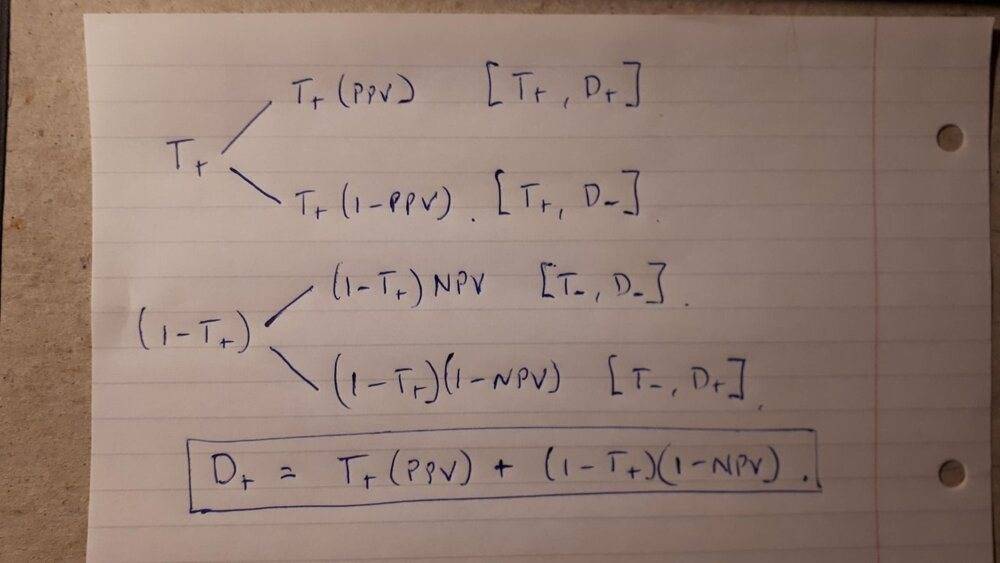 T₊ (PPV) [T₊, D₊]
T₊
T₊ (1-PPV). [T₊, D₋].
(1-T₊) NPV [T₋, D₋].
(1-T₊)
(1-T₊)(1-NPV) [T₋, D₊].
D₊ = T₊ (PPV) + (1-T₊)(1-NPV).